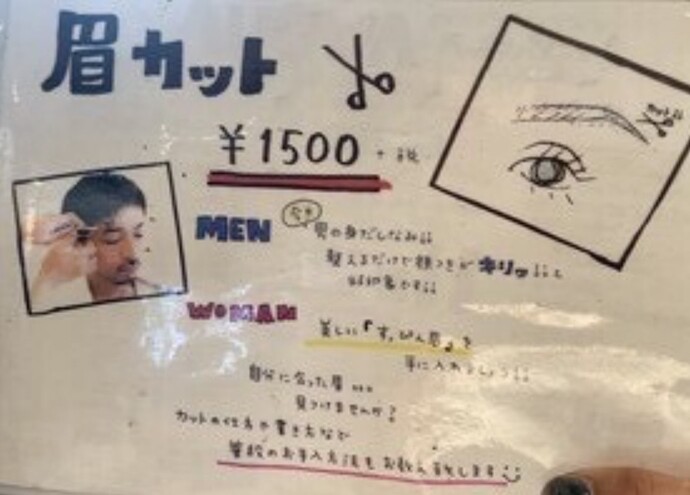 眉カット
¥1500 + 税
MEN
男の身だしなみ!!
整えるだけで顔つきがキリッ!!と
好印象です!!
WOMAN
美しい『すっぴん眉』を
手に入れましょう!!
自分に合った眉...
見つけませんか?
カットの仕方や書き方など
普段のお手入れ方法もお教え致します